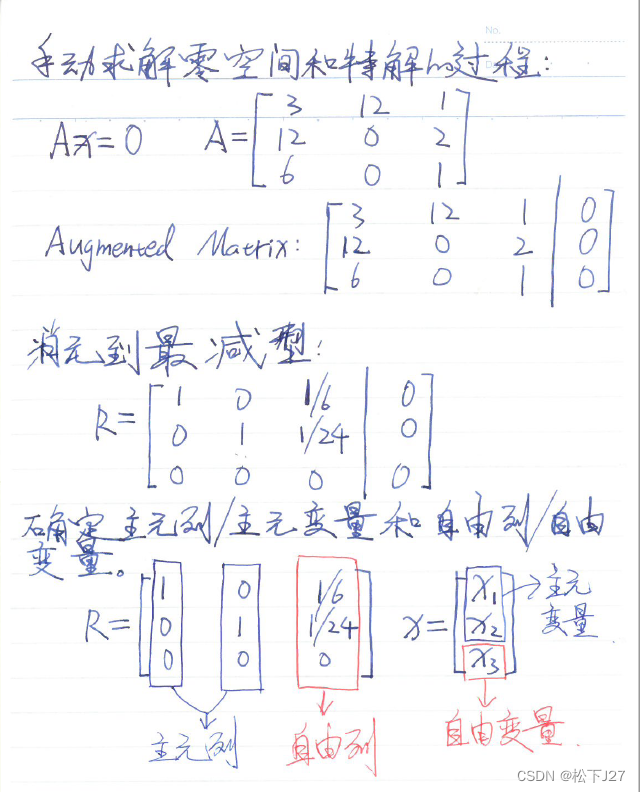 No.
手动求解零空间和特解的过程:
Ax=0 A=[3 12 1
12 0 2
6 0 1]
Augmented Matrix: [3 12 1 | 0
12 0 2 | 0
6 0 1 | 0]
消元到最减型:
R=[1 0 1/6 | 0
0 1 1/24 | 0
0 0 0 | 0]
确定主元列/主元变量和自由列/自由
变量。
R=[1 0 1/6
0 1 1/24
0 0 0] x=[x1
x2
x3] →主元
变量
主元列 自由列 自由变量.
CSDN @松下J27